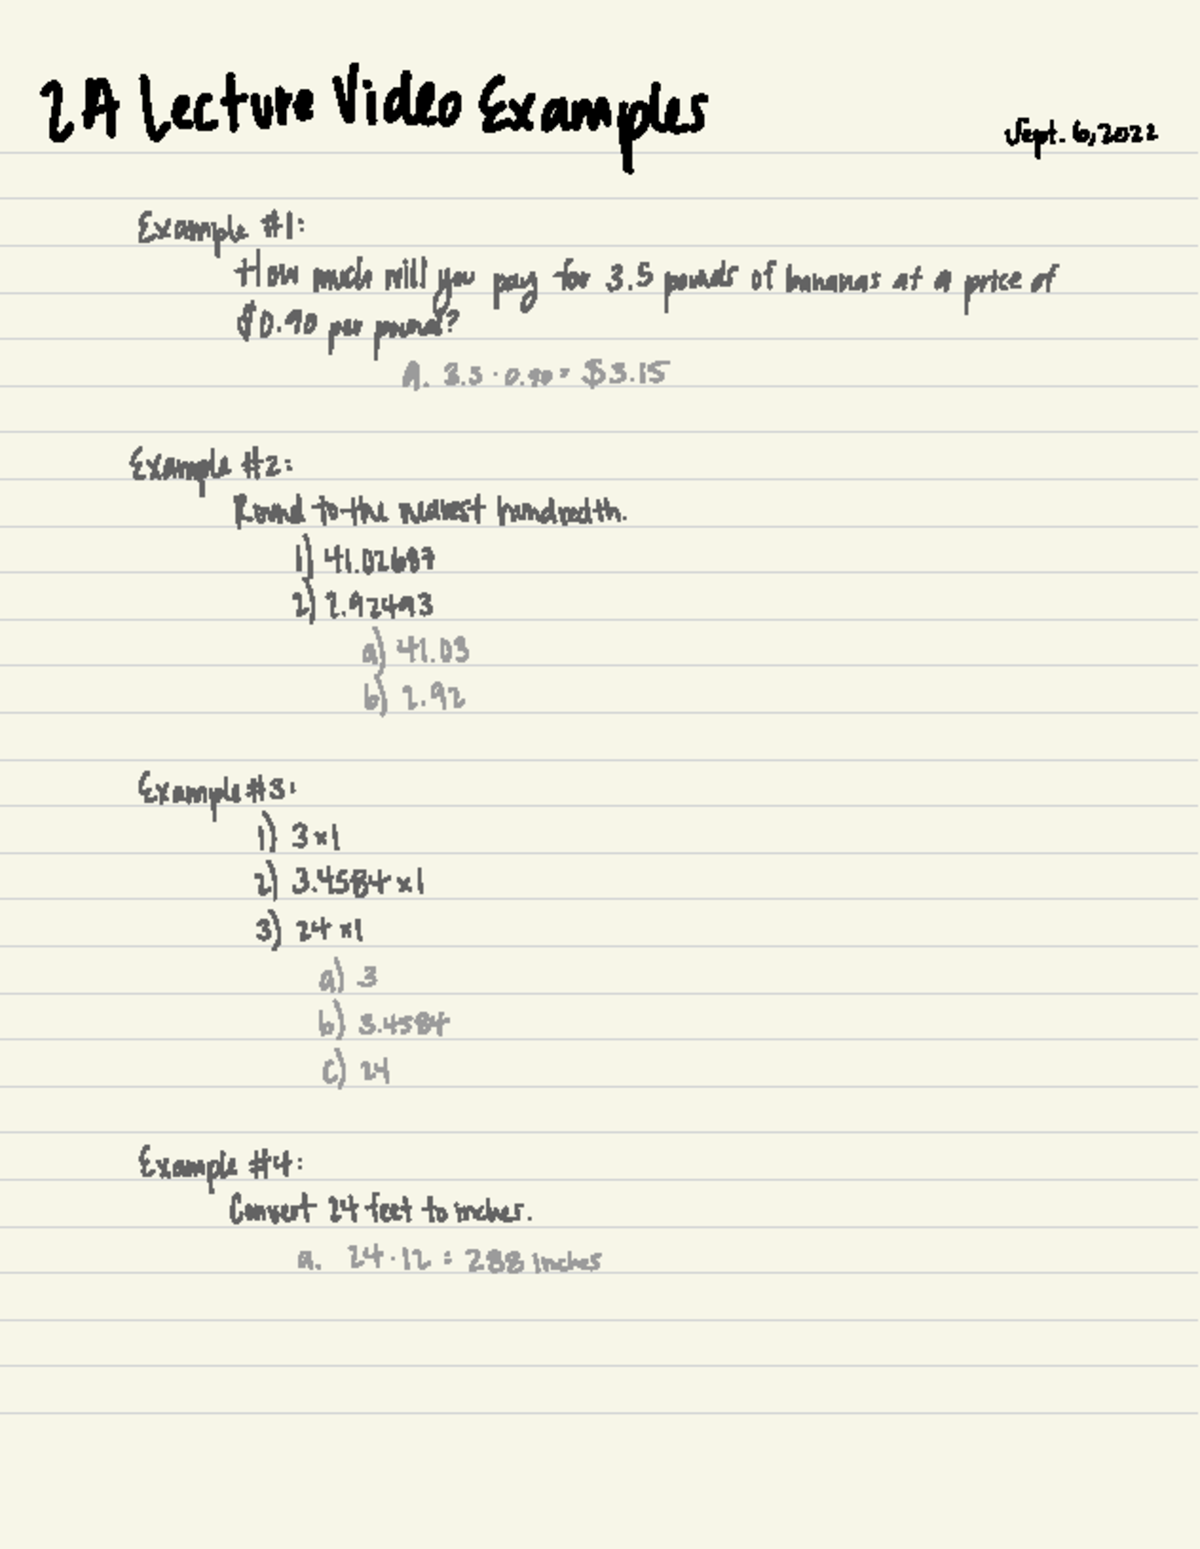 2A Lecture Video Examples
Sept. 6, 2022
Example #1:
How much will you pay for 3.5 pounds of bananas at a price of
$0.90 per pound?
A. 3.5 · 0.90 = $3.15
Example #2:
Round to the nearest hundredth.
1) 41.02687
2) 2.92493
a) 41.03
b) 2.92
Example #3:
1) 3 × 1
2) 3.4584 × 1
3) 24 × 1
a) 3
b) 3.4584
c) 24
Example #4:
Convert 24 feet to inches.
a. 24 · 12 = 288 inches